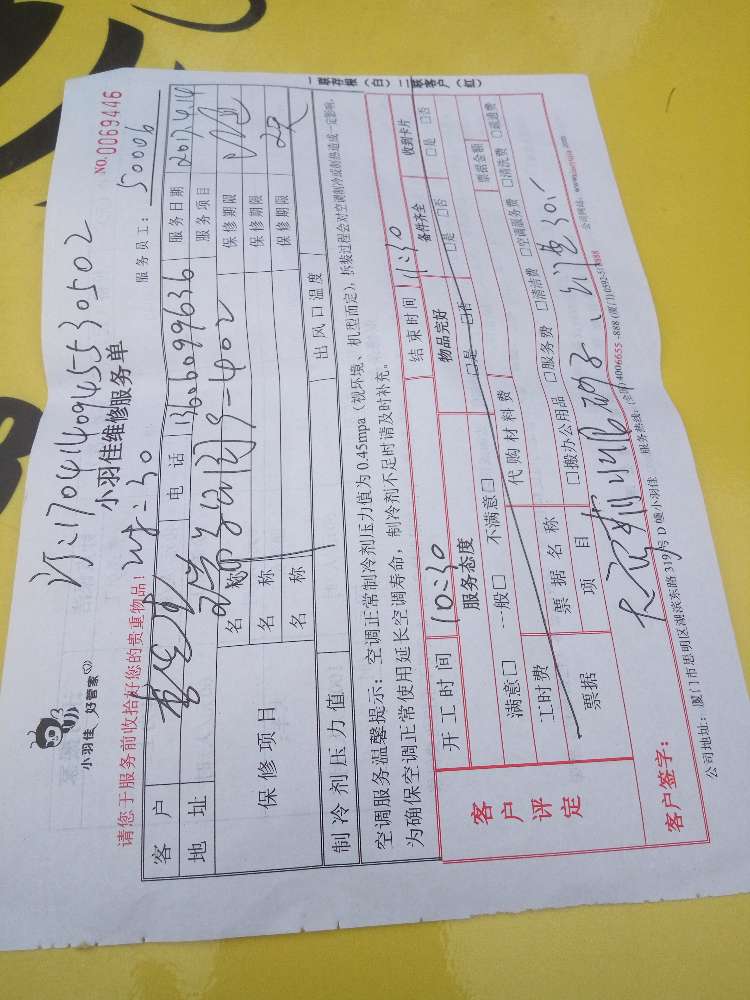 一联存根（白）二联客户（红）
NO.0069446
许:17041409455530502
小羽佳 好管家
小羽佳维修服务单
服务员工: 50006
请您于服务前收拾好您的贵重物品!
客户 电话 13606099636 服务日期 2017.4.14
地址 402 服务项目
保修项目 名称 保修期限
名称 保修期限
名称 保修期限
制冷剂压力值 出风口温度
空调服务温馨提示: 空调正常制冷剂压力值为 0.45mpa（视环境、机型而定），拆装过程会对空调制冷或制热造成一定影响,
为确保空调正常使用延长空调寿命，制冷剂不足时请及时补充。
客户评定
开工时间 10:30 结束时间 11:30
服务态度 物品完好 备件齐全 收到卡片
满意□ 一般□ 不满意□ □是 □否 □是 □否 □是 □否
工时费 代购材料费 票据金额
票据 票据名称 □搬办公用品 □服务费 □清洁费 □空调服务费 □清洗费 □疏通费
项目
客户签字:
公司地址: 厦门市思明区湖滨东路 319 号 D 幢小羽佳 服务热线: